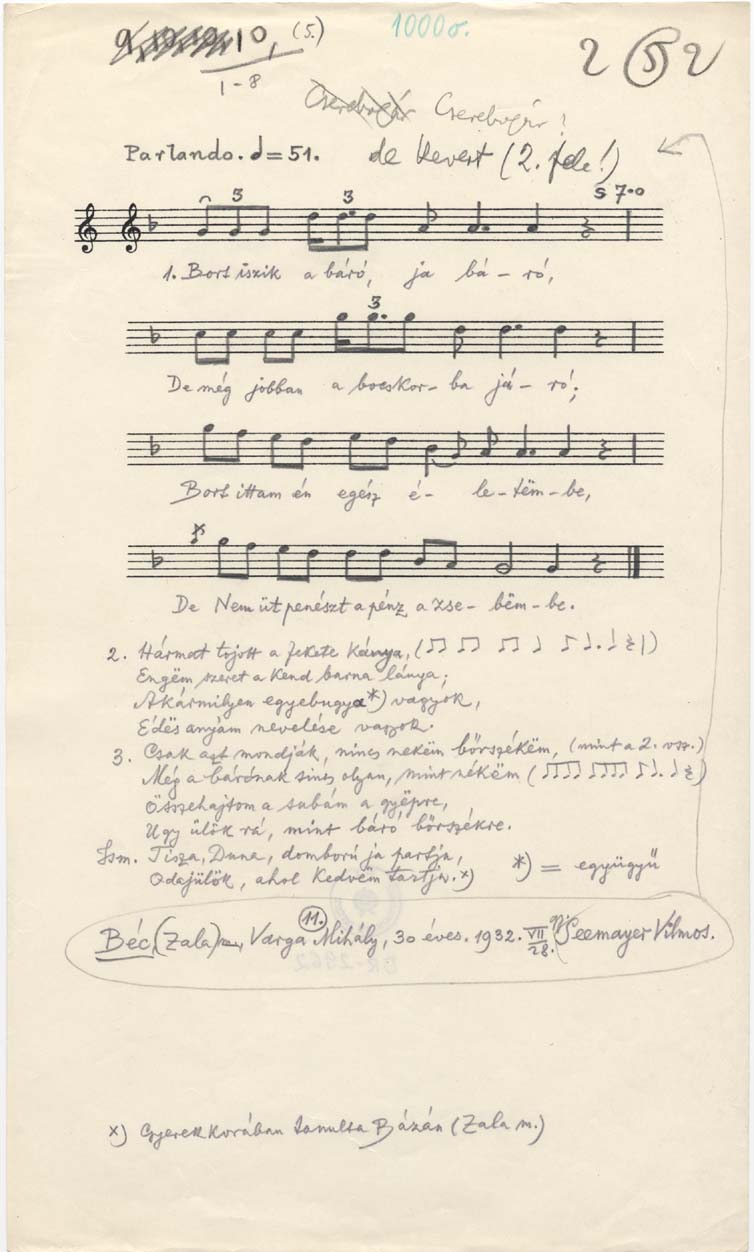 10, (5.)
1-8
1000 σ.
2 (5) 2
Cserebogár Cserebogár!
Parlando. = 51. de Kevert (2. fele!)
3 3 57.0
1. Bort iszik a báró, ja bá-ró,
3
De még jobban a bocskor-ba já-ró;
Bort ittam én egész é- le-tëm-be,
De Nem üt penészt a pénz a zse- bëm-be.
2. Hármat tojott a fekete kánya, ( )
Engëm szeret a kend barna lánya;
Akármilyen egyebugya*) vagyok,
Édës anyám nevelése vagyok.
3. Csak azt mondják, nincs nekëm bőrszékëm, (mint a 2. vsz.)
Még a bárónak sincs olyan, mint nékëm ( )
Összehajtom a subám a gyëpre,
Ugy ülök rá, mint báró bőrszékre.
Ism. Tisza, Duna, domború ja partja,
Odajülök, ahol kedvem tartja. x) *) = együgyű
Béc, (Zala) Varga Mihály, (11.) 30 éves. 1932. VII/28. Seemayer Vilmos.
x) Gyerekkorában tanulta Bázán (Zala m.)